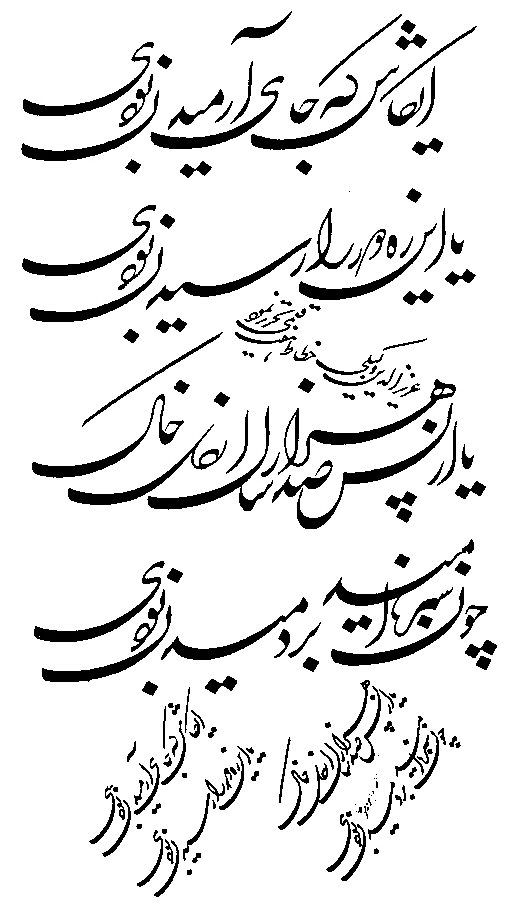 ایکاش که جای آرمیدن بودی
یا این ره دور را رسیدن بودی
عزیزالدین وکیلی
خطاط هفت قلمی تحریر نمود
یا از پس صد هزار سال از خاک
چون سبزه امید بر دمیدن بودی
ایکاش که جای آرمیدن بودی
یا این ره دور را رسیدن بودی
یا از پس صد هزار سال از خاک
چون سبزه امید بر دمیدن بودی